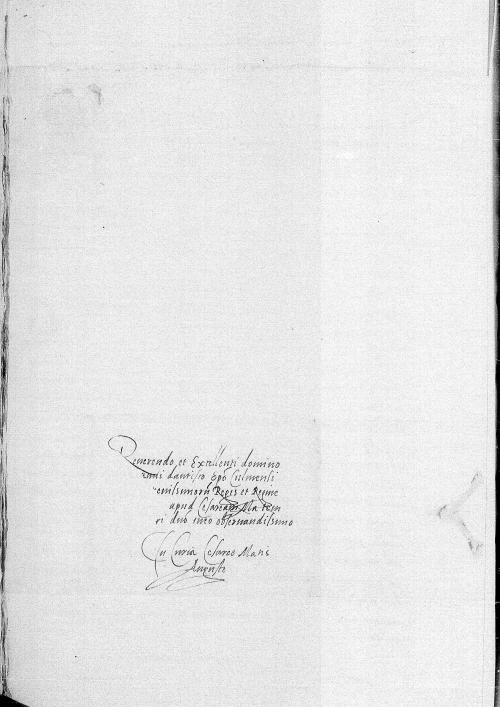 Reverendo et Excellenti domino
dantisco Epō Culmensi
Regis et Regine
apud Cesaream Ma
ri dnō meo observandissimo
In Curia Cesaree Matis
Auguste